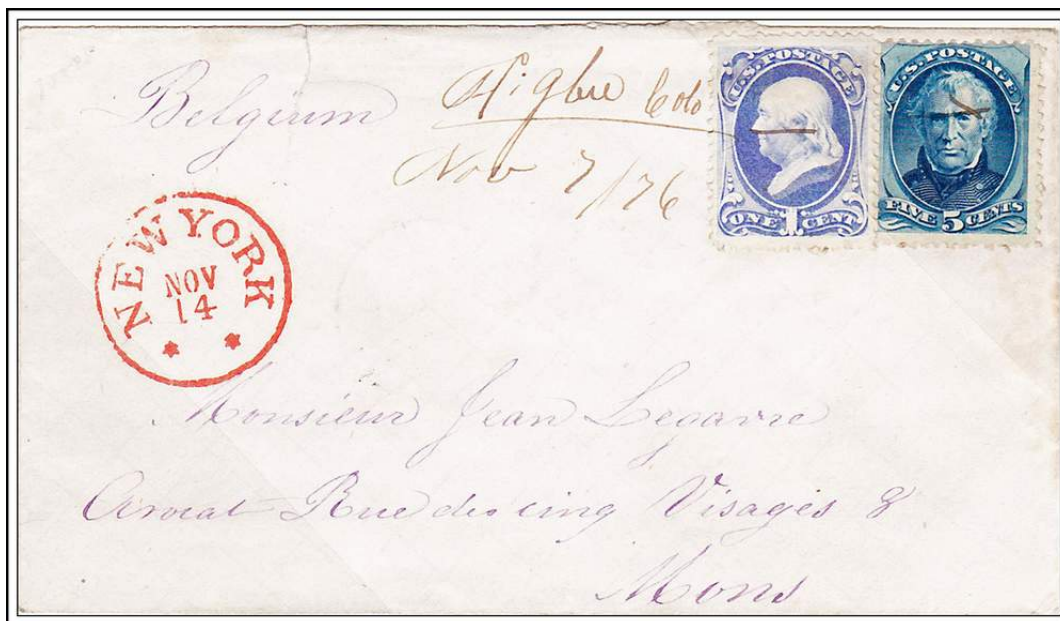 Belgium
Higbee Colo
Nov 7/76
U.S. POSTAGE
ONE 1 CENT
U.S. POSTAGE
FIVE 5 CENTS
NEW YORK
NOV
14
Monsieur Jean Legavre
Avocat Rue des cinq Visages 8
Mons